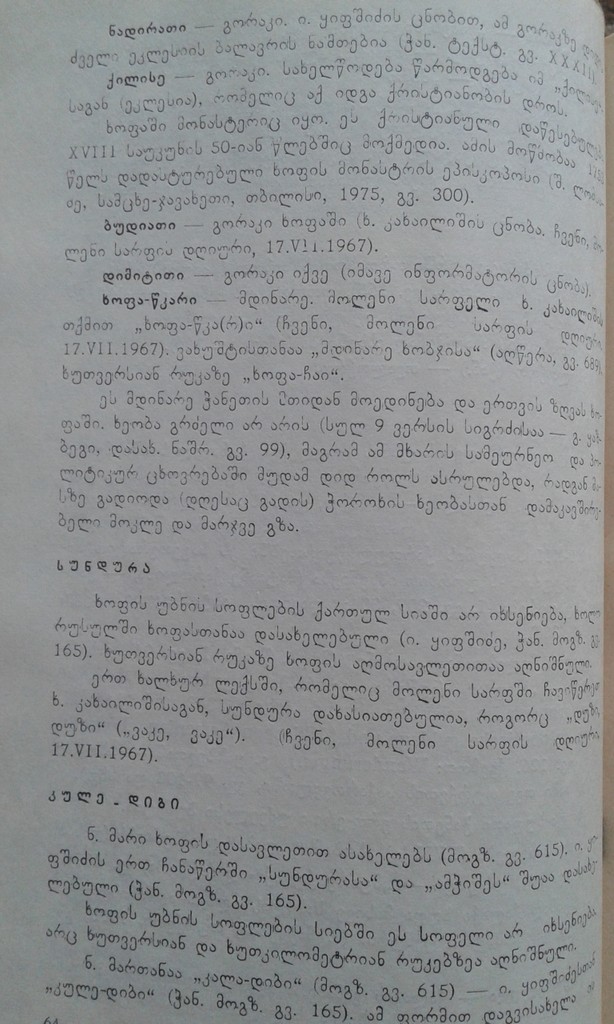 ნადირათი — გორაკი. ი. ყიფშიძის ცნობით, ამ გორაკზე
ძველი ეკლესიის ბალავრის ნაშთებია (ჭან. ტექსტ. გვ. XXXII).
ქილისე — გორაკი. სახელწოდება წარმოდგება იმ „ქილისე-
საგან (ეკლესია), რომელიც აქ იდგა ქრისტიანობის დროს.
ხოფაში მონასტერიც იყო. ეს ქრისტიანული დაწესებულება
XVIII საუკუნის 50-იან წლებშიც მოქმედია. ამის მოწმობაა
წელს დადასტურებული ხოფის მონასტრის ეპისკოპოსი (შ.
ძე, სამცხე-ჯავახეთი, თბილისი, 1975, გვ. 300).
ბუდიათი — გორაკი ხოფაში (ხ. კახაილიშის ცნობა. ჩვენი, მო-
ლენი სარფის დღიური, 17.VII.1967).
დიმიტითი — გორაკი იქვე (იმავე ინფორმატორის ცნობა).
ხოფა-წკარი — მდინარე. მოლენი სარფელი ხ. კახაილიშის
თქმით „ხოფა-წკა(რ)ი“ (ჩვენი, მოლენი სარფის დღიური
17.VII.1967). ვახუშტისთანაა „მდინარე ხობჯისა“ (აღწერა, გვ. 689),
ხუთვერსიან რუკაზე „ხოფა-ჩაი“.
ეს მდინარე ჭანეთის მთიდან მოედინება და ერთვის ზღვას ხო-
ფაში. ხეობა გრძელი არ არის (სულ 9 ვერსის სიგრძისაა — გ. ყაზ-
ბეგი, დასახ. ნაშრ. გვ. 99), მაგრამ ამ მხარის სამეურნეო და პო-
ლიტიკურ ცხოვრებაში მუდამ დიდ როლს ასრულებდა, რადგან მა-
სზე გადიოდა (დღესაც გადის) ჭოროხის ხეობასთან დამაკავშირე-
ბელი მოკლე და მარჯვე გზა.
სუნდურა
ხოფის უბნის სოფლების ქართულ სიაში არ იხსენიება, ხოლო
რუსულში ხოფასთანაა დასახელებული (ი. ყიფშიძე, ჭან. მოგზ. გვ.
165). ხუთვერსიან რუკაზე ხოფის აღმოსავლეთითაა აღნიშნული.
ერთ ხალხურ ლექსში, რომელიც მოლენი სარფში ჩავიწერეთ
ხ. კახაილიშისაგან, სუნდურა დახასიათებულია, როგორც „დუზი,
დუზი“ („ვაკე, ვაკე“). (ჩვენი, მოლენი სარფის დღიური
17.VII.1967).
კულე-დიგი
ნ. მარი ხოფის დასავლეთით ასახელებს (მოგზ. გვ. 615). ი. ყი-
ფშიძის ერთ ჩანაწერში „სუნდურასა“ და „ამჭიშეს“ შუაა დასახე-
ლებული (ჭან. მოგზ. გვ. 165).
ხოფის უბნის სოფლების სიებში ეს სოფელი არ იხსენიება.
არც ხუთვერსიან და ხუთკილომეტრიან რუკებზეა აღნიშნული.
ნ. მართანაა „კალა-დიბი“ (მოგზ. გვ. 615) — ი. ყიფშიძესთან
„კულე-დიბი“ (ჭან. მოგზ. გვ. 165). ამ ფორმით დაგვისახელა
64